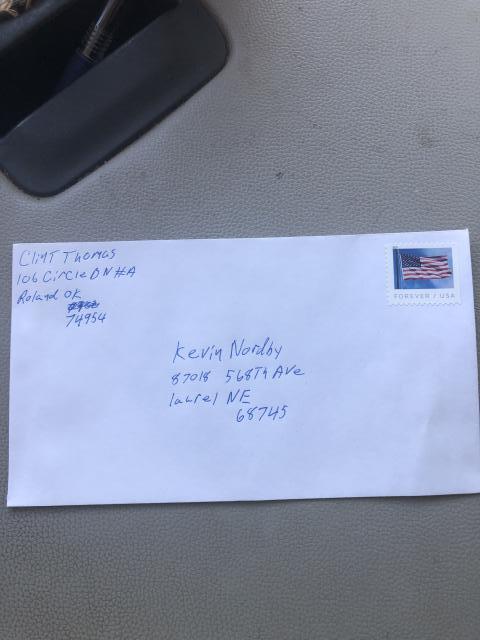 Clint Thomas
106 Circle DN #A
Roland OK
74954
FOREVER / USA
Kevin Nordby
87018 568Th Ave
laurel NE
68745